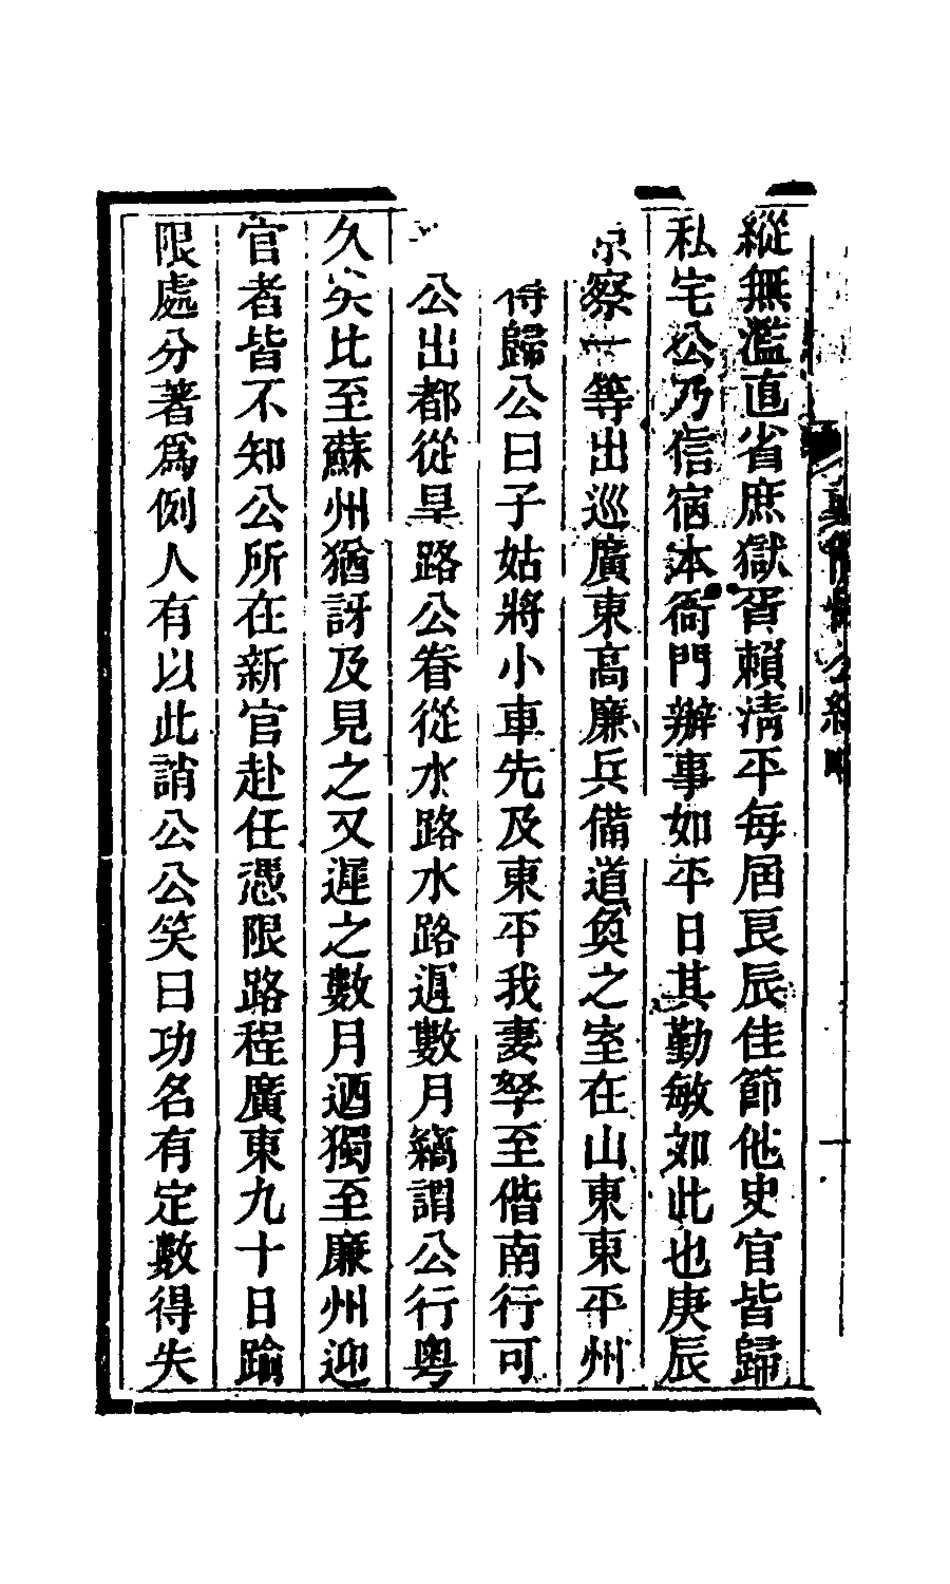 縱無濫直省庶獄胥賴淸平每屆良辰佳節他吏官皆歸
私宅公乃信宿本衙門辦事如平日其勤敏如此也庚辰
京察一等出巡廣東高廉兵備道負之室在山東東平州
得歸公曰子姑將小車先及東平我妻孥至偕南行可
公出都從旱路公眷從水路水路遲數月竊謂公行粵
久矣比至蘇州猶訝及見之又遲之數月迺獨至廉州迎
官者皆不知公所在新官赴任憑限路程廣東九十日踰
限處分著爲例人有以此誚公公笑曰功名有定數得失